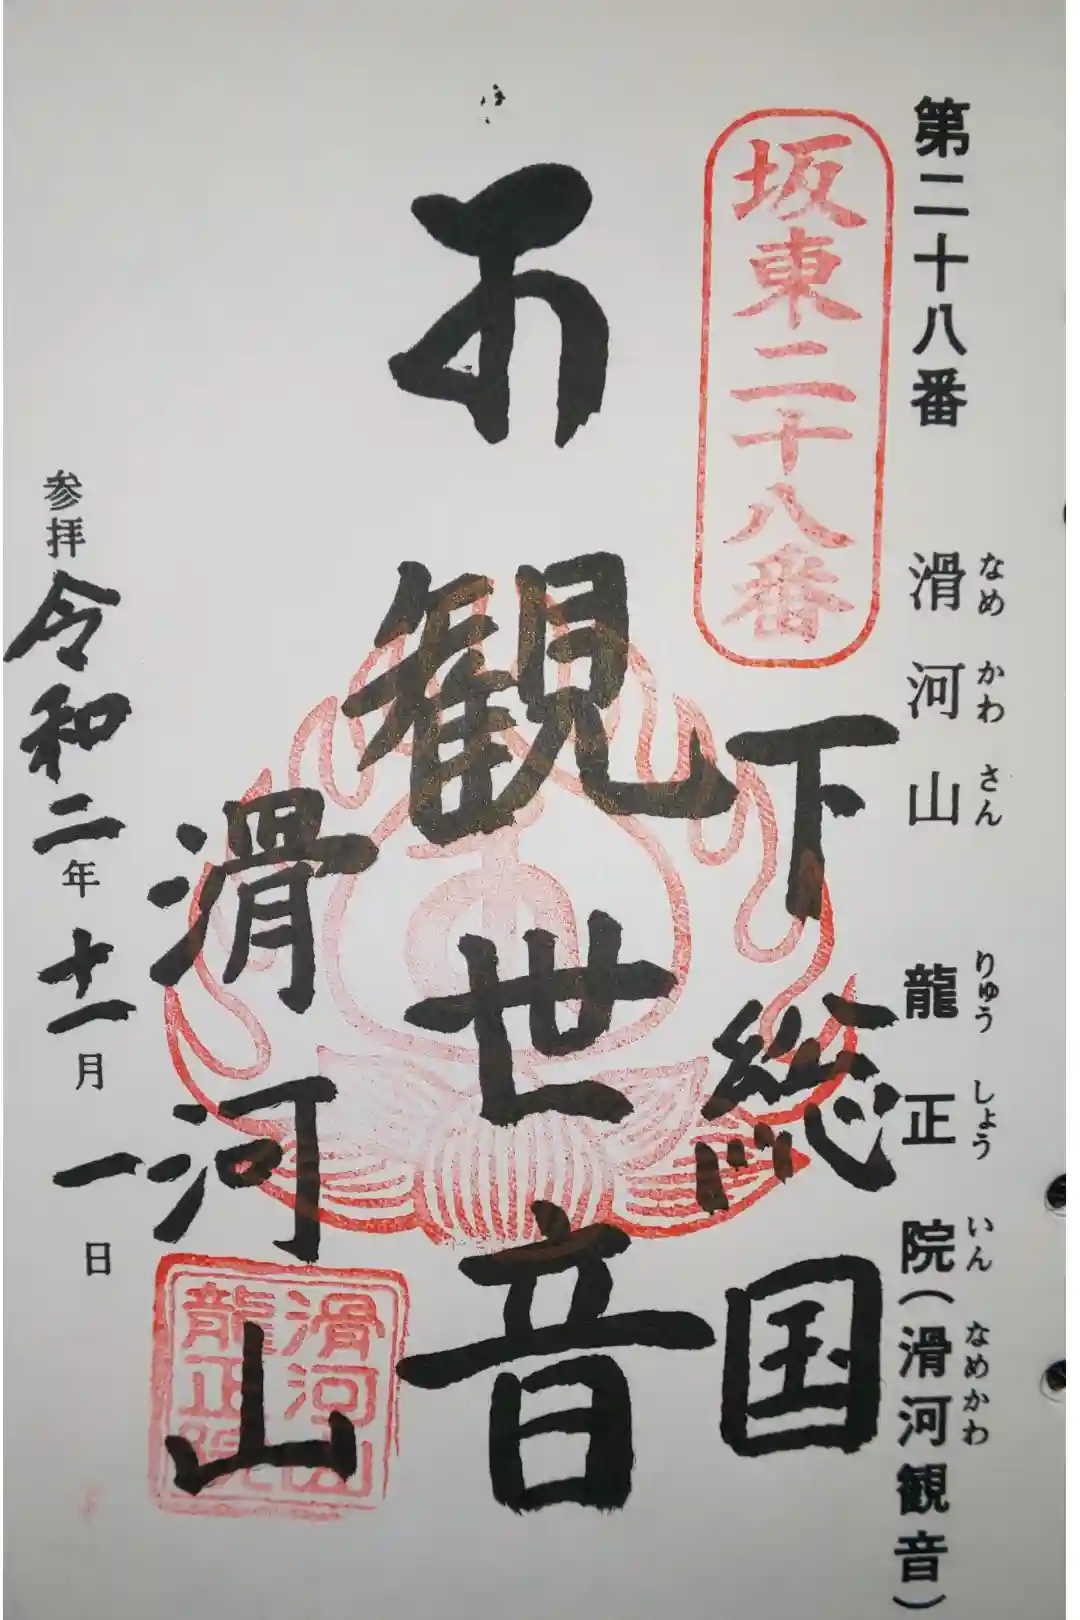 第二十八番 滑河山 龍正院（滑河観音）
なめ かわ さん りゅう しょう いん なめかわ
坂東二十八番
下総国
観世音
滑河山
滑河山
龍正院
参拝 令和二年十一月一日